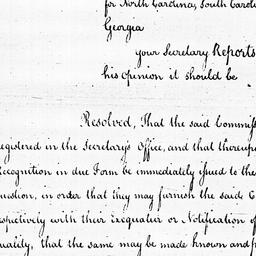 for North Carolina, South Caroli
Georgia
your Secretary Reports
his opinion it should be
Resolved, That the said Commiss
egistered in the Secretary's Office, and that thereupo
Recognition in due Form be immediately issued to the
uestion, in order that they may furnish the said C
espectively with their Exequatur or Notification of
uality, that the same may be made known and p